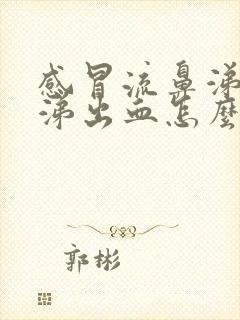 感冒流鼻涕
涕出血怎麽
郭彬